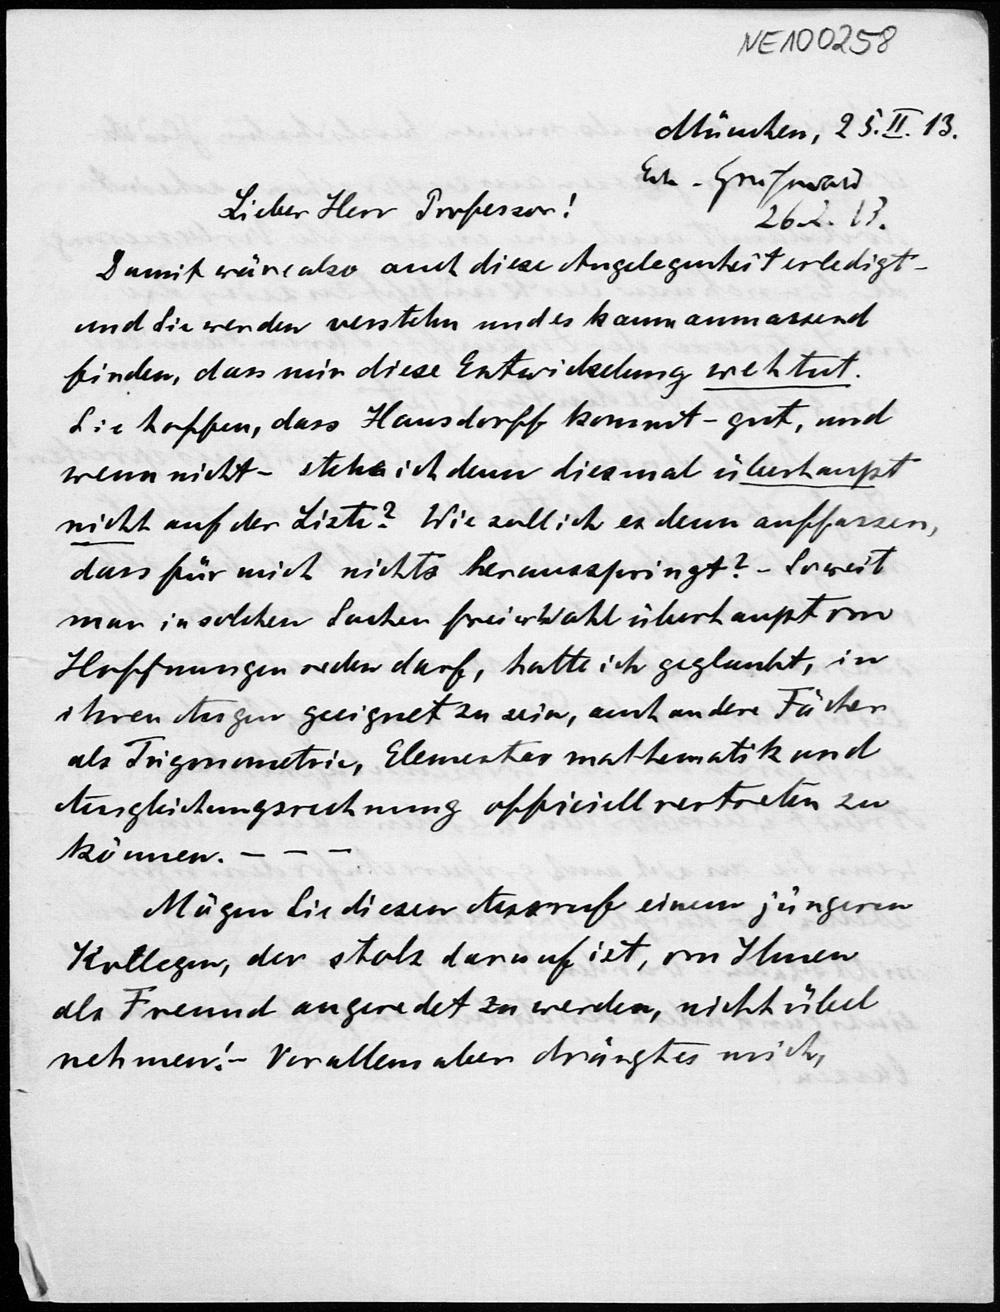 NE100258
München, 25.II.13.
Greifswald
26.2.13.
Lieber Herr Professor!
Damit wäre also auch diese Angelegenheit erledigt -
und Sie werden verstehn und es kaum anmassend
finden, dass mir diese Entwickelung wehtut.
Sie hoffen, dass Hausdorff kommt - gut, und
wenn nicht - stehe ich denn diesmal überhaupt
nicht auf der Liste? Wie soll ich es denn auffassen,
dass für mich nichts herausspringt? - Soweit
man in solchen Sachen freier Wahl überhaupt von
Hoffnungen reden darf, hatte ich geglaubt, in
ihren Augen geeignet zu sein, auch andere Fächer
als Trigonometrie, Elementarmathematik und
Ausgleichungsrechnung officiell vertreten zu
können. - - -
Mögen Sie diesen Ausruf einem jüngeren
Kollegen, der stolz darauf ist, von Ihnen
als Freund angeredet zu werden, nicht übel
nehmen! - Vor allem aber drängt es mich,